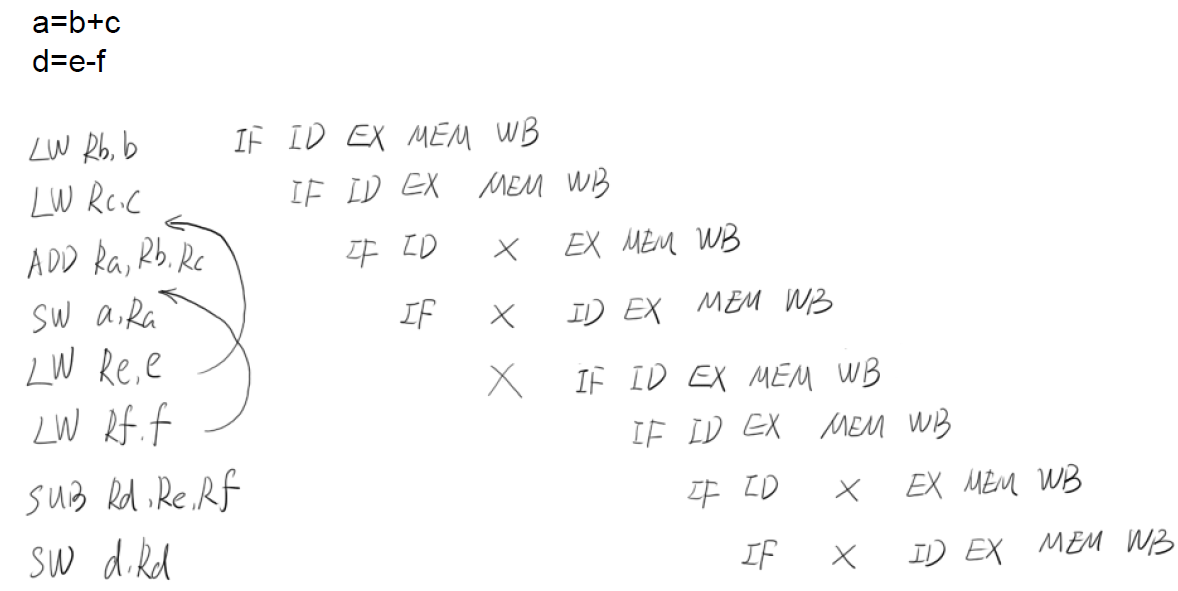 a=b+c
d=e-f
LW Rb,b IF ID EX MEM WB
LW Rc,c IF ID EX MEM WB
ADD Ra,Rb,Rc IF ID X EX MEM WB
SW a,Ra IF X ID EX MEM WB
LW Re,e X IF ID EX MEM WB
LW Rf,f IF ID EX MEM WB
SUB Rd,Re,Rf IF ID X EX MEM WB
SW d,Rd IF X ID EX MEM WB